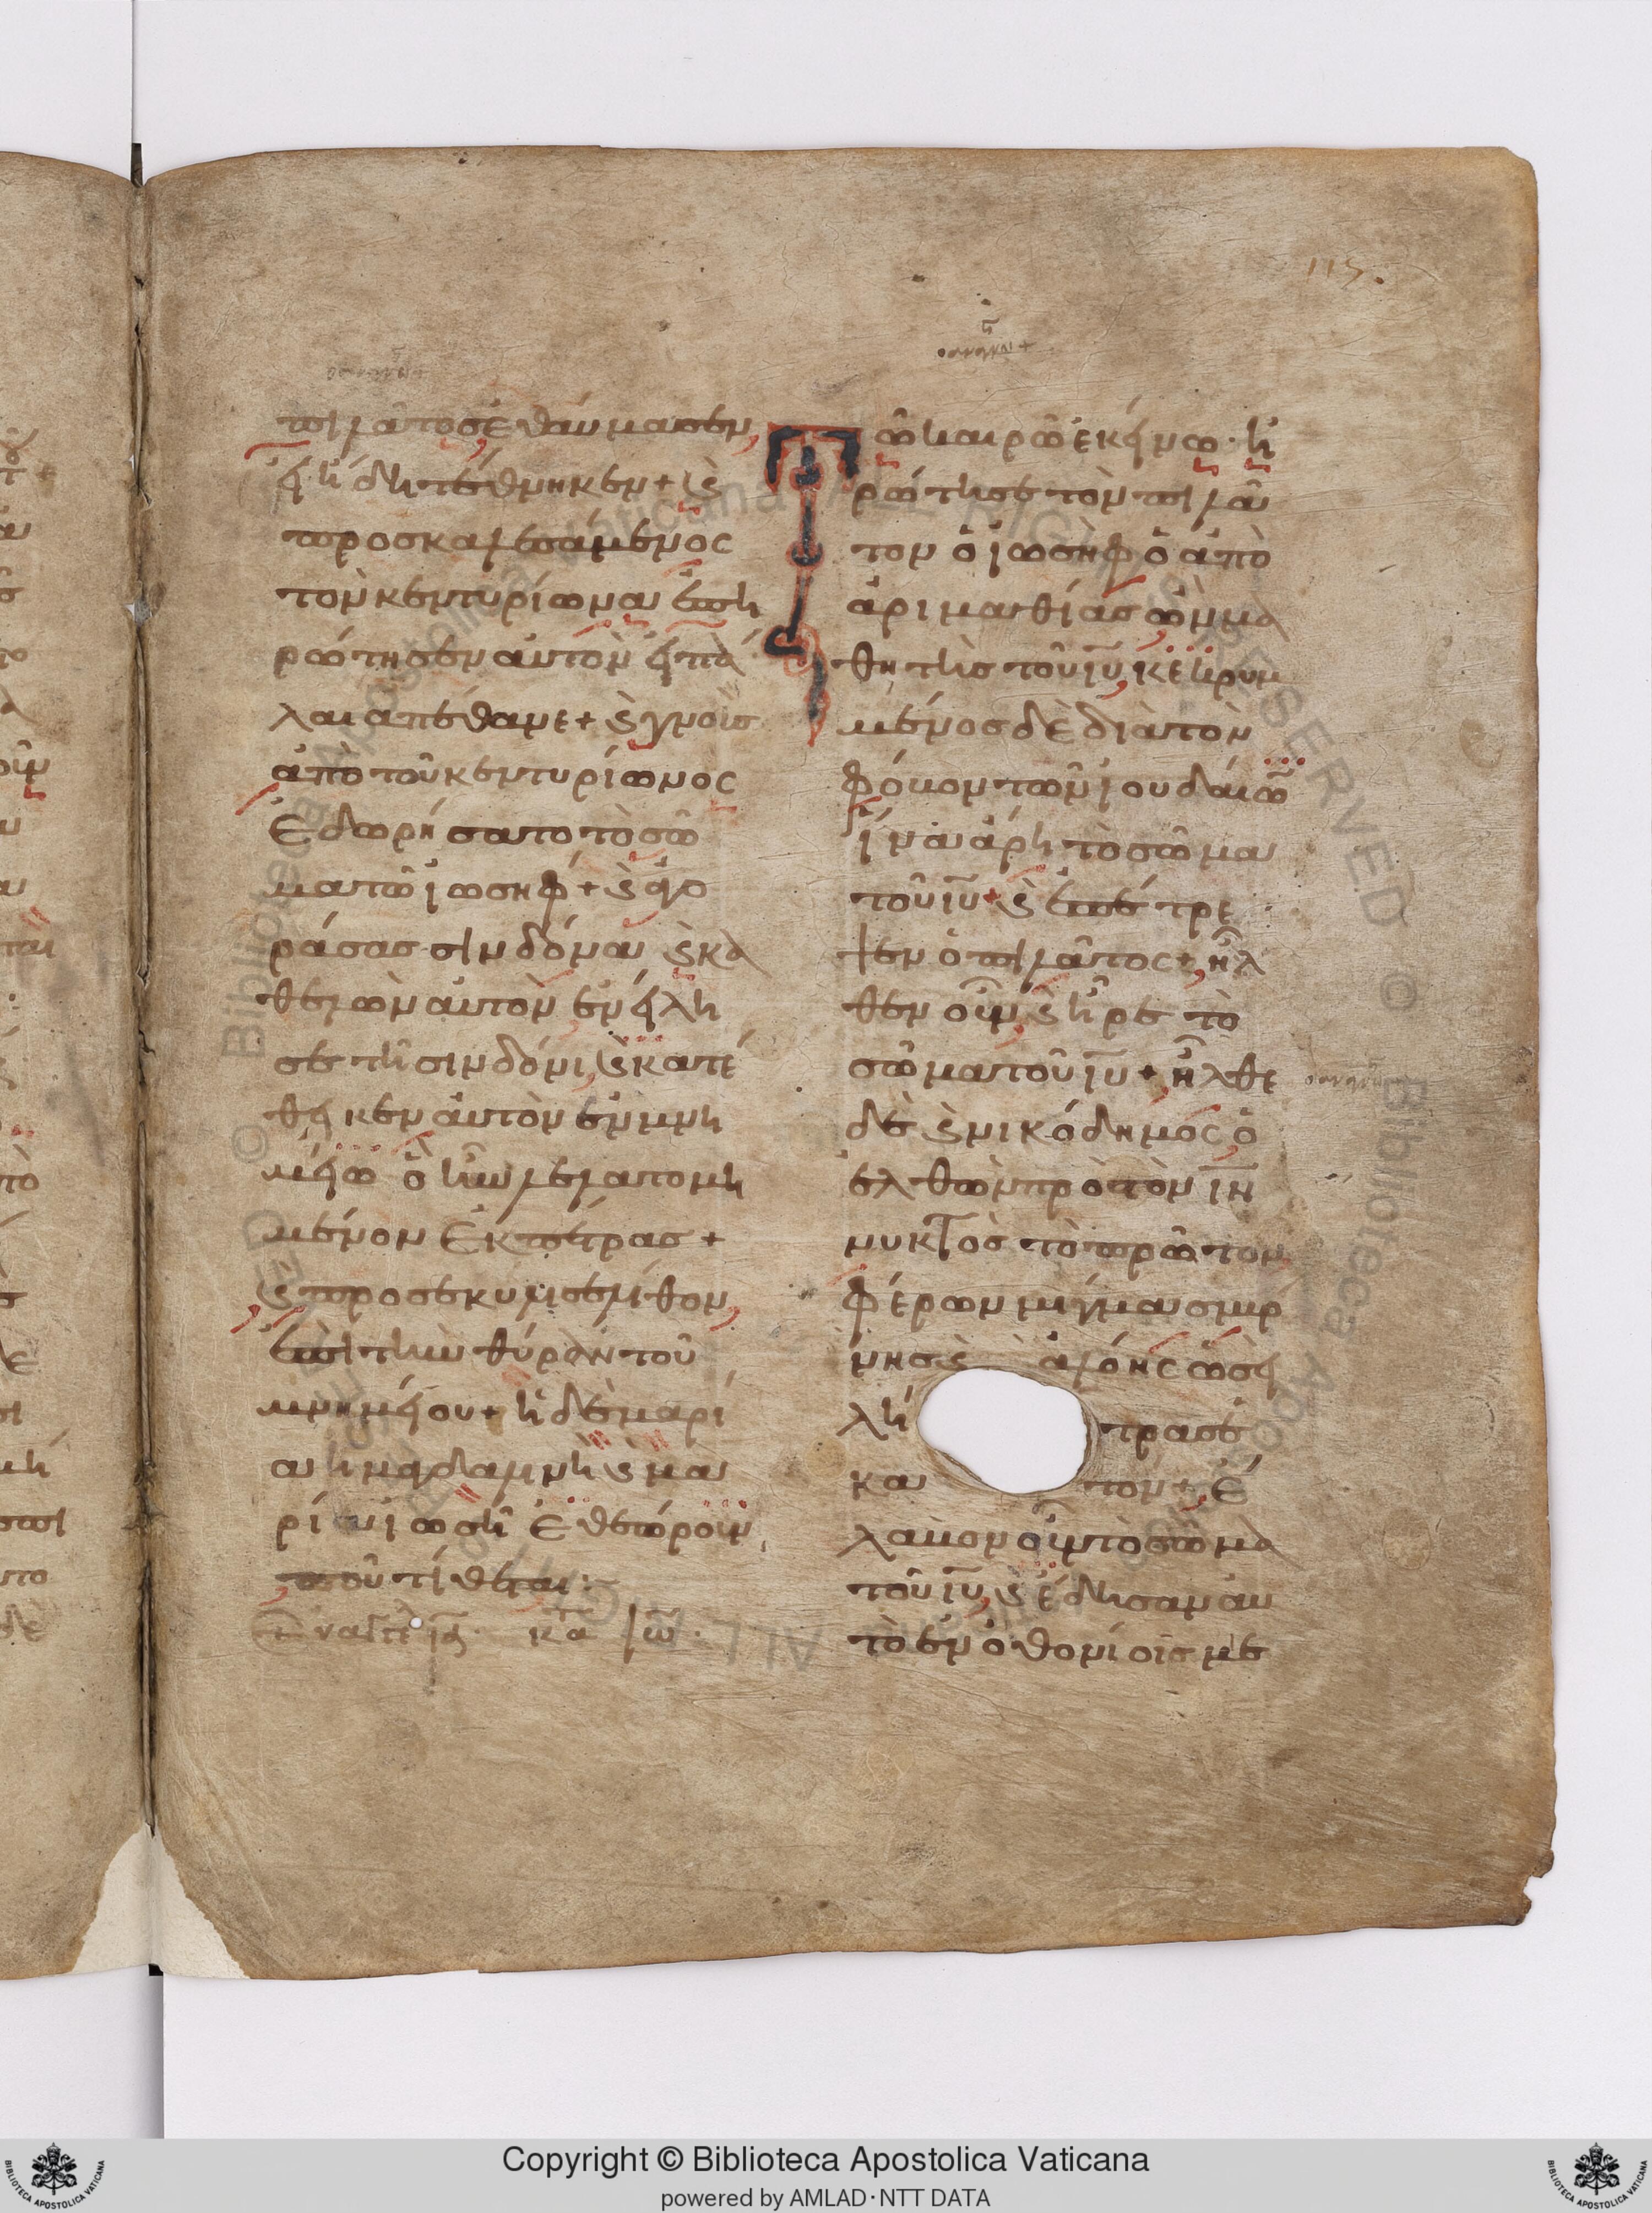 115.
πιλάτος ἐθαύμασεν,
εἰ ἤδη τέθνηκεν + ϛ
προσκαλεσάμενος
τὸν κεντυρίωνα ἐπη
ρώτησεν αὐτὸν εἰ πά
λαι απέθανε + ϛ γνοὺς
ἀπὸ τοῦ κεντυρίωνος
ἐδωρήσατο τὸ σῶ
μα τῶ ἰωσηφ + ϛ ἀγο
ράσας σινδόνα ϛ κα
θελων αὐτὸν ἐνείλη
σε τῆ σινδόνι, ϛ κατέ
θηκεν αὐτὸν ἐν μνη
μείω ὃ ἦν λελατομη
μένον ἐκ πέτρας +
ϛ προσεκύλισε λίθον,
ἐπὶ τὴν θύραν τοῦ
μνημείου + ἡ δὲ μαρί
α ἡ μαγδαληνὴ ϛ μα
ρία ἰωσῆ ἐθεώρουν,
ποῦ τίθεται :
κα ιω
Τῶ καιρῶ ἐκείνω · ἠ
ρώτησε τὸν πιλᾶ
τον ὁ ἰωσὴφ ὁ ἀπὸ
ἀριμαθίας ὢν μα
θητὴς τοῦ ιυ, κεκρυμ
μένος δὲ διὰ τὸν
φόβον τῶν ἰουδαίω
ἵνα ἄρη τὸ σῶμα
τοῦ ιυ + ϛ ἐπέτρε
ψεν ὁ πιλᾶτος + ἦλ
θεν οὖν ϛ ἦρε τὸ
σῶμα τοῦ ιυ + ἦλθε
δὲ ϛ νικόδημος ὁ
ἐλθὼν πρὸς τὸν ιν
νυκτὸς τὸ πρῶτον
φέρων μίγμα σμύρ
νης ϛ ἀλόης ὡσεὶ
λί τρας ἑ
κα τόν + ἔ
λαβον οὖν τὸ σῶμα
τοῦ ιυ, ϛ ἔδησαν αὐ
τὸ ἐν ὀθονίοις με
Copyright © Biblioteca Apostolica Vaticana
powered by AMLAD·NTT DATA